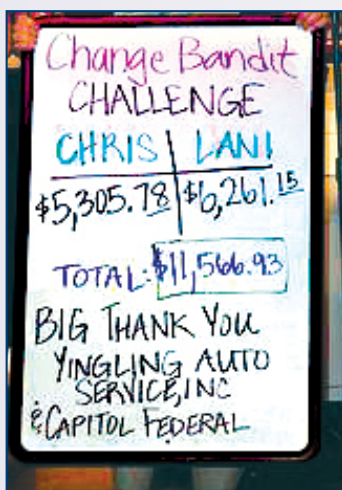 Change Bandit
CHALLENGE
CHRIS | LANI
$5,305.78 | $6,261.15
TOTAL: $11,566.93
BIG THANK YOU
YINGLING AUTO
SERVICE, INC
& CAPITOL FEDERAL